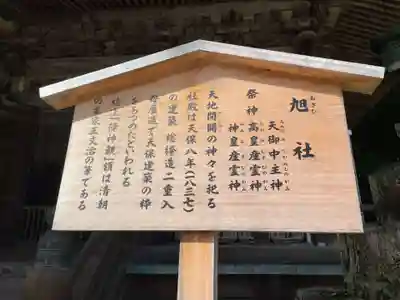 旭社
あさひ
祭神
天御中主神
高皇産霊神
神皇産霊神
天地開闢の神々を祀る
社殿は天保八年(一八三七)
の建築 総欅造 二重入
母屋造で天保建築の粋
をうつのたといわれる
楼上「降神観」額は清朝
の書家王文治の筆である